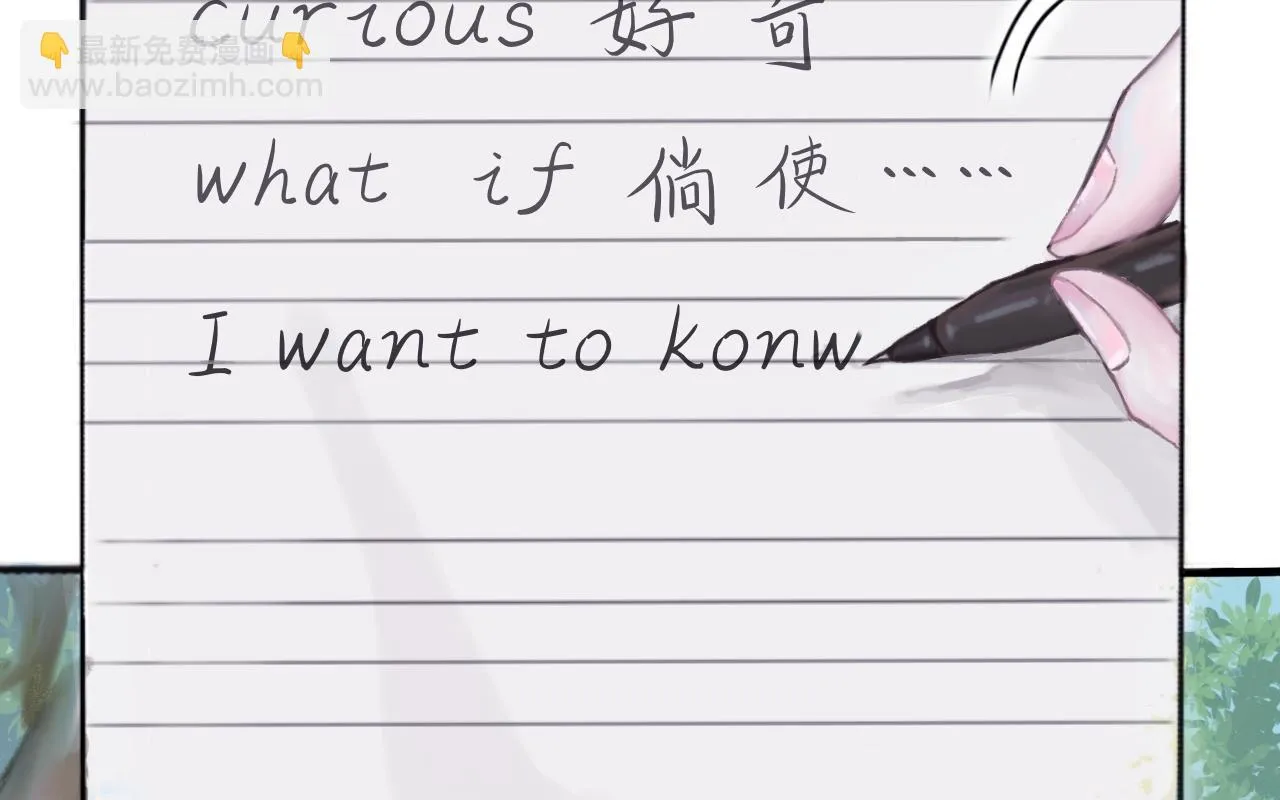 curious 好奇
👇最新免费漫画👇
www.baozimh.com
what if 倘使……
I want to konw